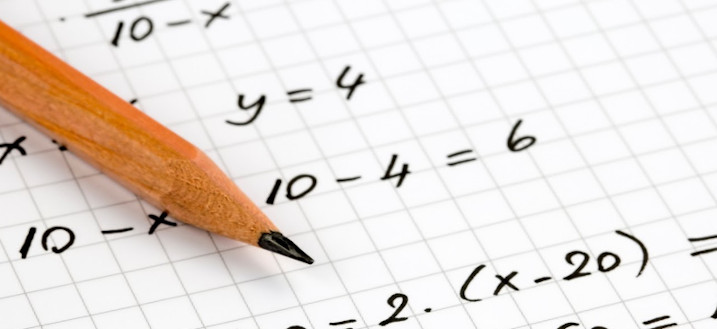 10 - x
y = 4
x
10 - 4 = 6
10 - x
= 2 . (x - 20) =
=